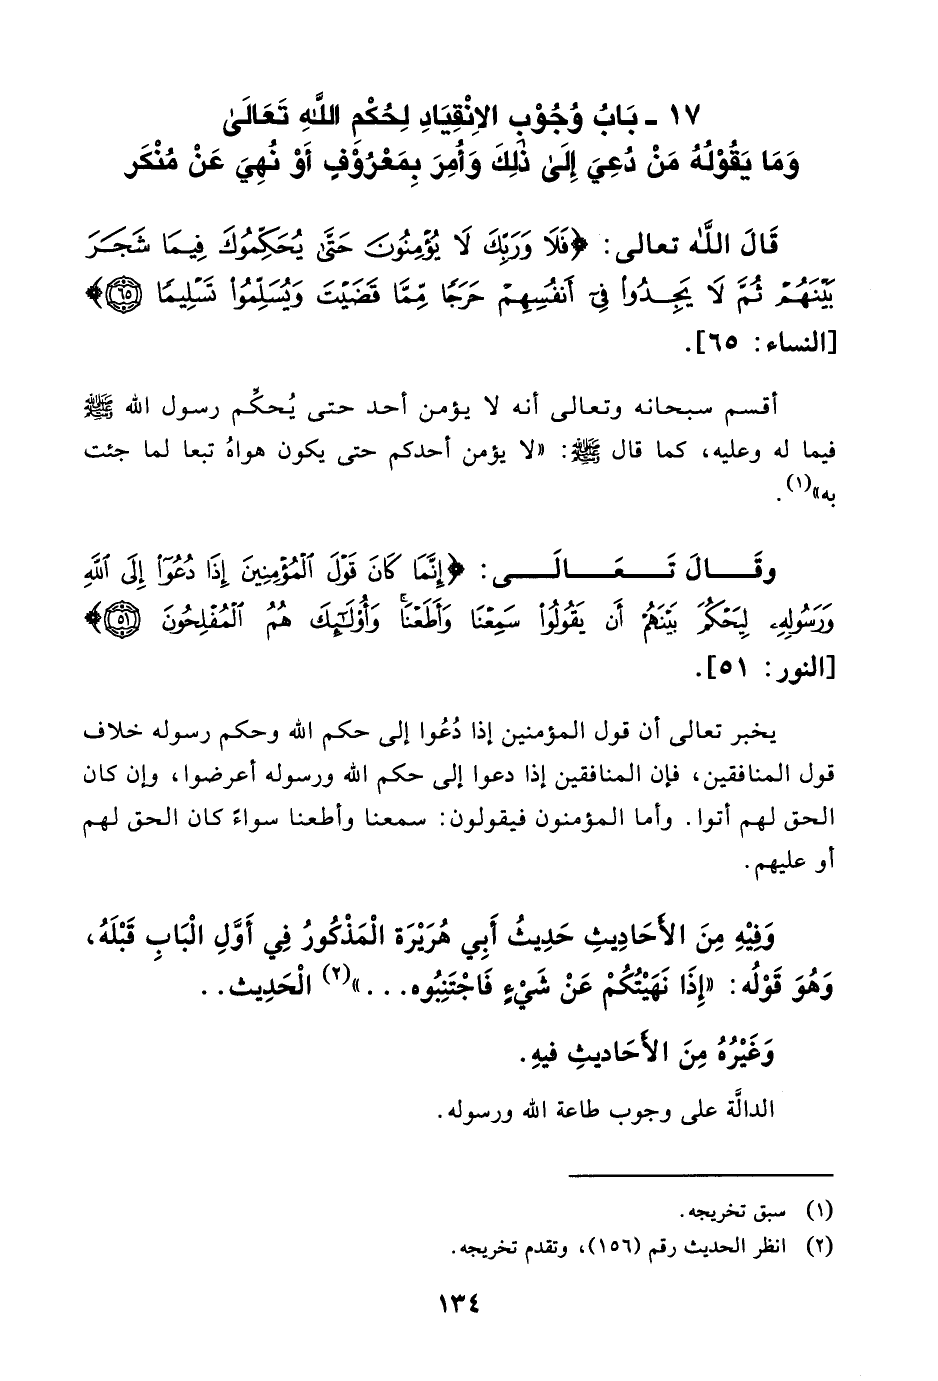 ١٧ - بَابُ وُجُوْبِ الاِنْقِيَادِ لِحُكْمِ اللَّهِ تَعَالَىٰ
وَمَا يَقُوْلُهُ مَنْ دُعِيَ إِلَىٰ ذٰلِكَ وَأُمِرَ بِمَعْرُوْفٍ أَوْ نُهِيَ عَنْ مُنْكَر
قَالَ اللَّه تعالى: ﴿فَلَا وَرَبِّكَ لَا يُؤْمِنُونَ حَتَّىٰ يُحَكِّمُوكَ فِيمَا شَجَرَ
بَيْنَهُمْ ثُمَّ لَا يَجِدُوا۟ فِىٓ أَنفُسِهِمْ حَرَجًا مِّمَّا قَضَيْتَ وَيُسَلِّمُوا۟ تَسْلِيمًا ۝٦٥﴾
[النساء: ٦٥].
أقسم سبحانه وتعالى أنه لا يؤمن أحد حتى يُحكِّم رسول الله ﷺ
فيما له وعليه، كما قال ﷺ: «لا يؤمن أحدكم حتى يكون هواهُ تبعا لما جئت
به»(١).
وقَـــالَ تَـــعَـــالَـــى: ﴿إِنَّمَا كَانَ قَوْلَ ٱلْمُؤْمِنِينَ إِذَا دُعُوٓا۟ إِلَى ٱللَّهِ
وَرَسُولِهِۦ لِيَحْكُمَ بَيْنَهُمْ أَن يَقُولُوا۟ سَمِعْنَا وَأَطَعْنَاۚ وَأُو۟لَٰٓئِكَ هُمُ ٱلْمُفْلِحُونَ ۝٥١﴾
[النور: ٥١].
يخبر تعالى أن قول المؤمنين إذا دُعُوا إلى حكم الله وحكم رسوله خلاف
قول المنافقين، فإن المنافقين إذا دعوا إلى حكم الله ورسوله أعرضوا، وإن كان
الحق لهم أتوا. وأما المؤمنون فيقولون: سمعنا وأطعنا سواءً كان الحق لهم
أو عليهم.
وَفِيْهِ مِنَ الأَحَادِيثِ حَدِيثُ أَبِي هُرَيْرَةَ الْمَذْكورُ فِي أَوَّلِ الْبَابِ قَبْلَهُ،
وَهُوَ قَوْلُه: «إِذَا نَهَيْتُكُمْ عَنْ شَيْءٍ فَاجْتَنِبُوه...»(٢) الْحَدِيث..
وَغَيْرُهُ مِنَ الأَحَاديثِ فيهِ.
الدالَّة على وجوب طاعة الله ورسوله.
(١) سبق تخريجه.
(٢) انظر الحديث رقم (١٥٦)، وتقدم تخريجه.
١٣٤